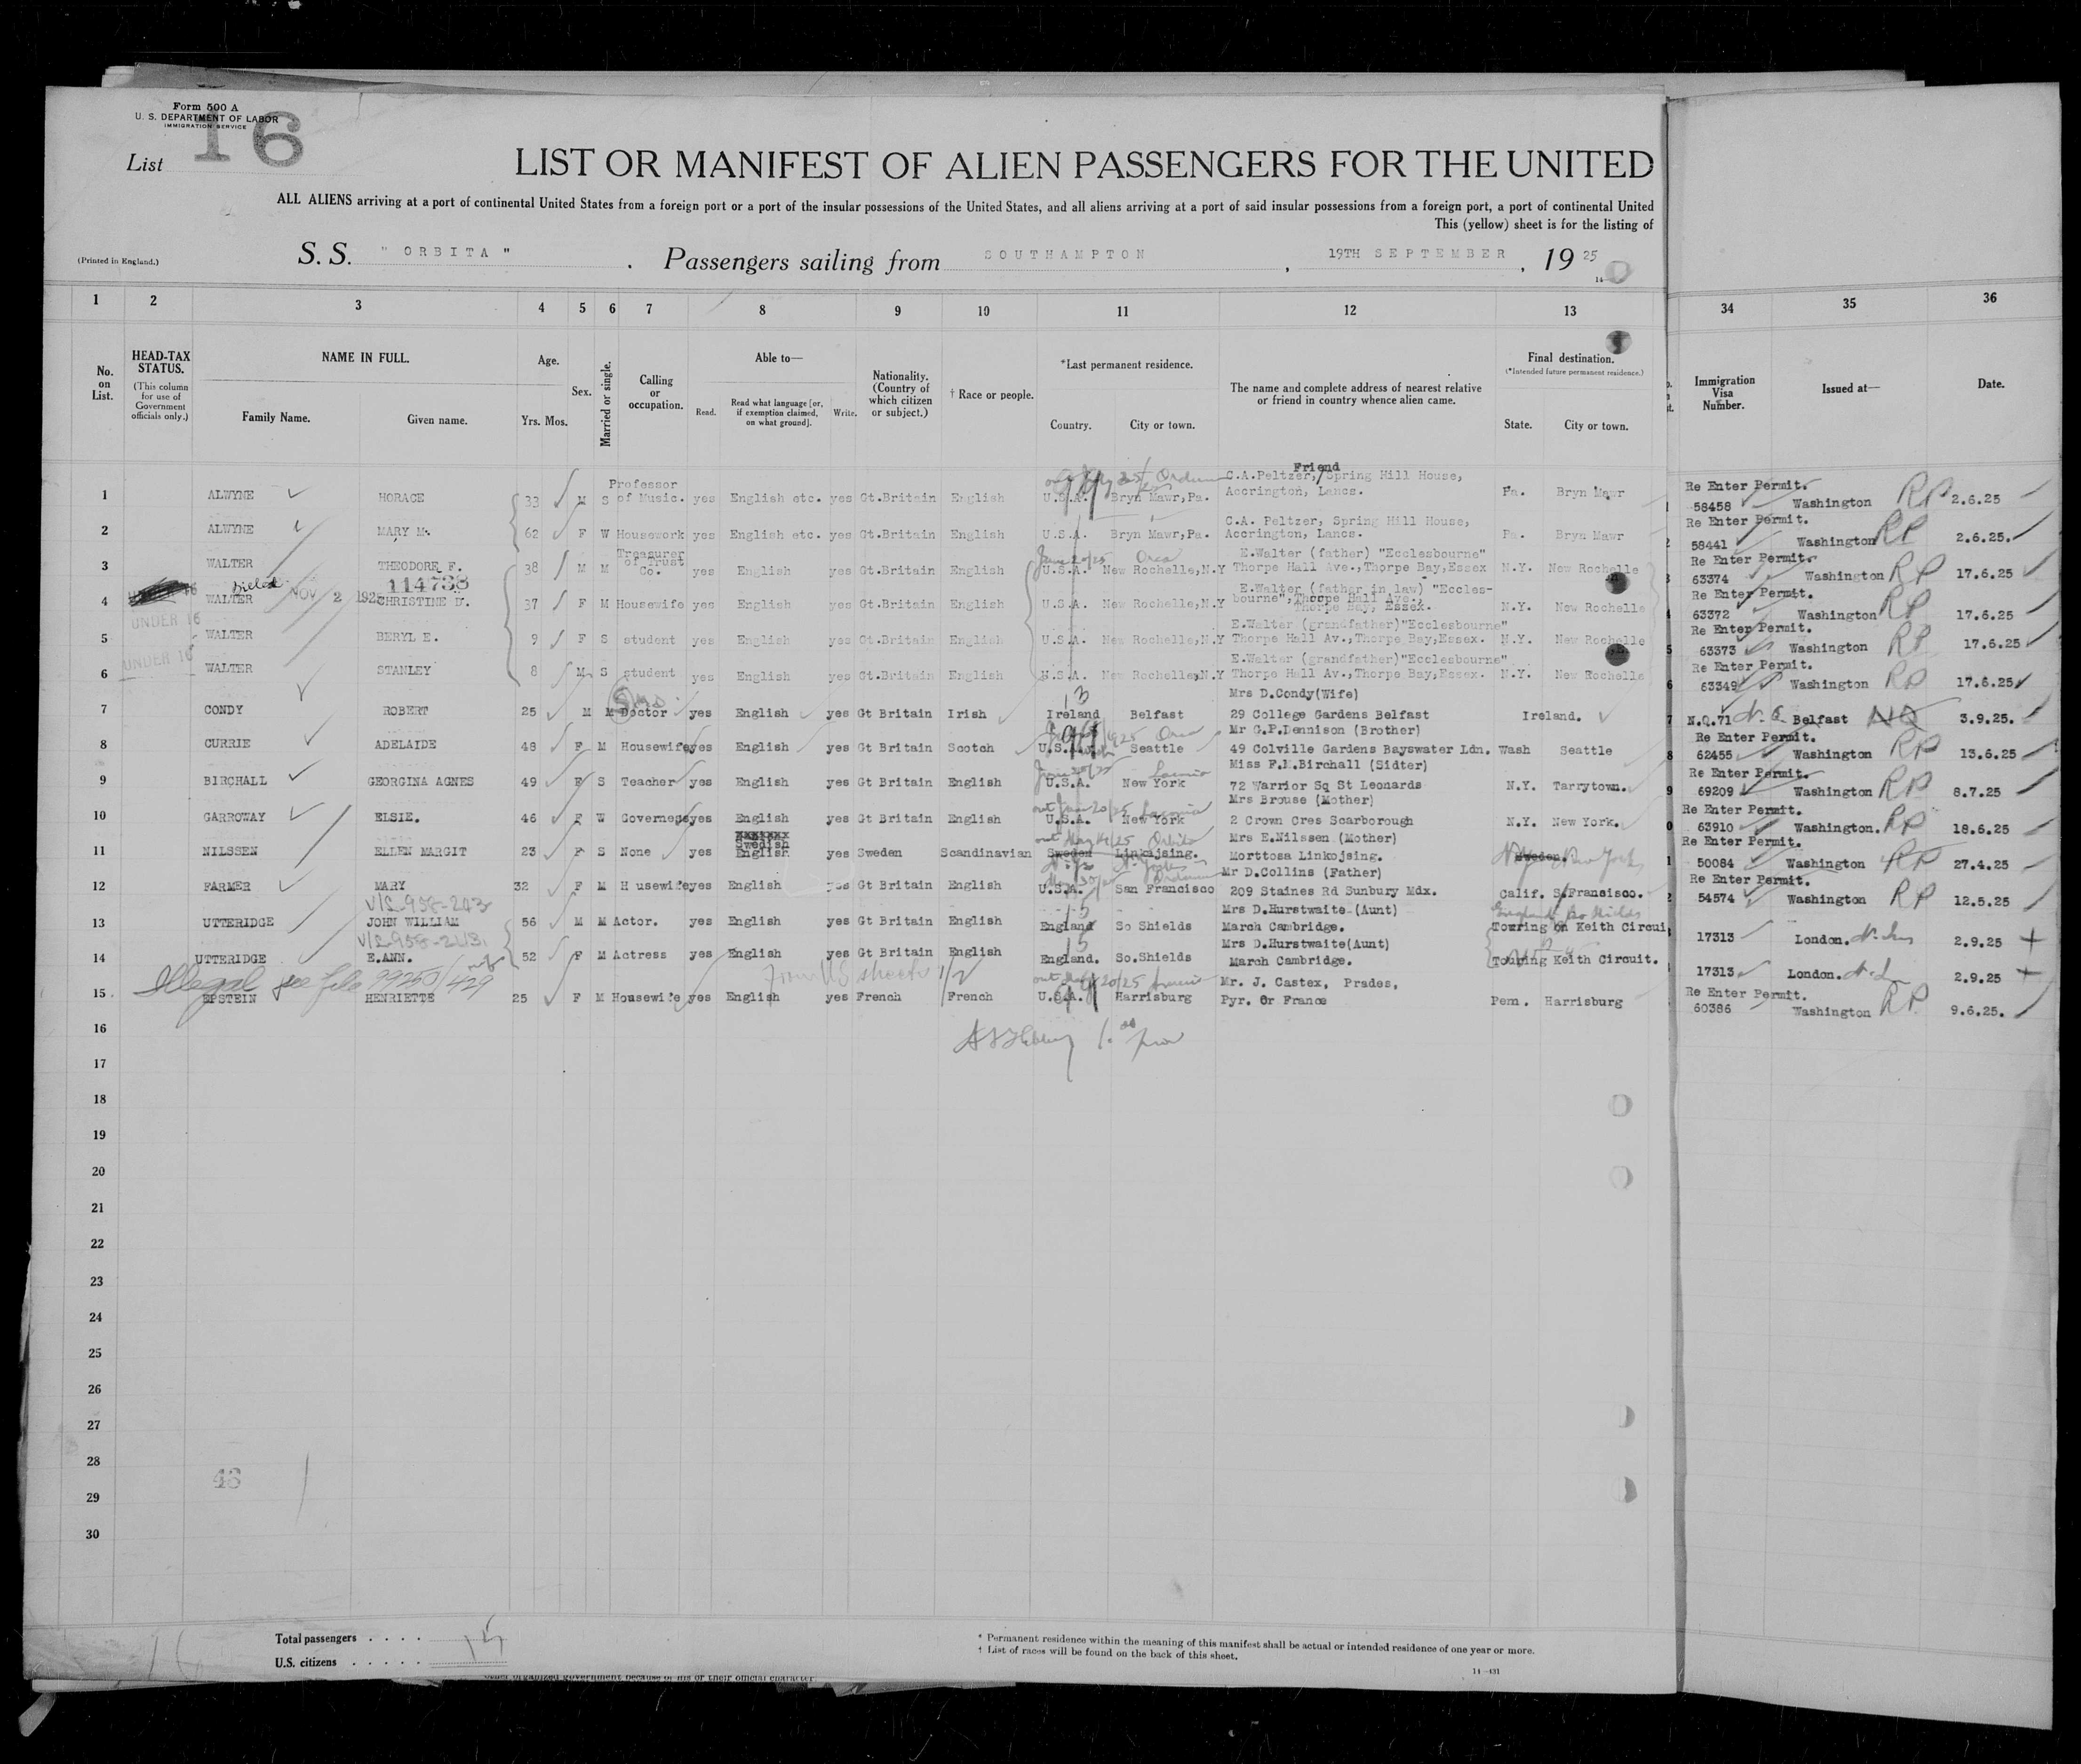 Form 500 A
U. S. DEPARTMENT OF LABOR
IMMIGRATION SERVICE
List 16
LIST OR MANIFEST OF ALIEN PASSENGERS FOR THE UNITED
ALL ALIENS arriving at a port of continental United States from a foreign port or a port of the insular possessions of the United States, and all aliens arriving at a port of said insular possessions from a foreign port, a port of continental United
This (yellow) sheet is for the listing of
(Printed in England.)
S. S. " ORBITA " . Passengers sailing from SOUTHAMPTON , 19TH SEPTEMBER , 19 25
14
1 2 3 4 5 6 7 8 9 10 11 12 13 34 35 36
No. on List.
HEAD-TAX STATUS.
(This column for use of Government officials only.)
NAME IN FULL.
Family Name. Given name.
Age.
Yrs. Mos.
Sex.
Married or single.
Calling or occupation.
Able to—
Read. Read what language [or, if exemption claimed, on what ground]. Write.
Nationality. (Country of which citizen or subject.)
† Race or people.
*Last permanent residence.
Country. City or town.
The name and complete address of nearest relative or friend in country whence alien came.
Final destination.
(*Intended future permanent residence.)
State. City or town.
Immigration Visa Number.
Issued at—
Date.
1 ALWYNE HORACE 33 M S Professor of Music. yes English etc. yes Gt.Britain English U.S.A. Bryn Mawr,Pa. C.A.Peltzer,/ Friend Spring Hill House, Accrington, Lancs. Pa. Bryn Mawr Re Enter Permit. 58458 Washington RP 2.6.25
2 ALWYNE MARY M. 62 F W Housework yes English etc. yes Gt.Britain English U.S.A. Bryn Mawr,Pa. C.A. Peltzer, Spring Hill House, Accrington, Lancs. Pa. Bryn Mawr Re Enter Permit. 58441 Washington RP 2.6.25.
3 WALTER THEODORE F. 38 M M Treasurer of Trust Co. yes English yes Gt.Britain English June 20/25 Orca U.S.A. New Rochelle,N.Y E.Walter (father) "Ecclesbourne" Thorpe Hall Ave.,Thorpe Bay,Essex N.Y. New Rochelle Re Enter Permit. 63374 Washington RP 17.6.25
114738
NOV 2 192
4 WALTER CHRISTINE D. 37 F M Housewife yes English yes Gt.Britain English U.S.A. New Rochelle,N.Y E.Walter (father in law) "Ecclesbourne",Thorpe Hall Ave., Thorpe Bay, Essex. N.Y. New Rochelle Re Enter Permit. 63372 Washington RP 17.6.25
UNDER 16
5 WALTER BERYL E. 9 F S student yes English yes Gt.Britain English U.S.A. New Rochelle,N.Y E.Walter (grandfather)"Ecclesbourne" Thorpe Hall Av.,Thorpe Bay,Essex. N.Y. New Rochelle Re Enter Permit. 63373 Washington RP 17.6.25
UNDER 16
6 WALTER STANLEY 8 M S student yes English yes Gt.Britain English U.S.A. New Rochelle,N.Y E.Walter (grandfather)"Ecclesbourne" Thorpe Hall Av.,Thorpe Bay,Essex. N.Y. New Rochelle Re Enter Permit. 63349 Washington RP 17.6.25
7 CONDY ROBERT 25 M M Doctor yes English yes Gt Britain Irish Ireland Belfast Mrs D.Condy(Wife) 29 College Gardens Belfast Ireland. N.Q.71 Belfast NQ 3.9.25.
8 CURRIE ADELAIDE 48 F M Housewife yes English yes Gt Britain Scotch U.S.A. Seattle Mr G.P.Dennison (Brother) 49 Colville Gardens Bayswater Ldn. Wash Seattle Re Enter Permit. 62455 Washington RP 13.6.25
9 BIRCHALL GEORGINA AGNES 49 F S Teacher yes English yes Gt Britain English U.S.A. New York Miss F.M.Birchall (Sidter) 72 Warrior Sq St Leonards N.Y. Tarrytown. Re Enter Permit. 69209 Washington RP 8.7.25
10 GARROWAY ELSIE. 46 F W Governess yes English yes Gt Britain English U.S.A. New York Mrs Brouse (Mother) 2 Crown Cres Scarborough N.Y. New York. Re Enter Permit. 63910 Washington. RP 18.6.25
11 NILSSEN ELLEN MARGIT 23 F S None yes Swedish English yes Sweden Scandinavian out May 14/25 Orbita Sweden Linkojsing. Mrs E.Nilssen (Mother) Morttosa Linkojsing. Sweden. New York Re Enter Permit. 50084 Washington RP 27.4.25
12 FARMER MARY 32 F M H usewife yes English yes Gt Britain English U.S.A. San Francisco Mr D.Collins (Father) 209 Staines Rd Sunbury Mdx. Calif. S.Francisco. Re Enter Permit. 54574 Washington RP 12.5.25
13 UTTERIDGE JOHN WILLIAM 56 M M Actor. yes English yes Gt Britain English England So Shields Mrs D.Hurstwaite (Aunt) March Cambridge. Touring on Keith Circui 17313 London. 2.9.25
14 UTTERIDGE E.ANN. 52 F M Actress yes English yes Gt Britain English England. So.Shields Mrs D.Hurstwaite(Aunt) March Cambridge. Touring Keith Circuit. 17313 London. 2.9.25
Illegal see file 99250/429
15 EPSTEIN HENRIETTE 25 F M Housewife yes English yes French French U.S.A. Harrisburg Mr. J. Castex, Prades, Pyr. Or France Pem. Harrisburg Re Enter Permit. 60386 Washington RP 9.6.25.
16
17
18
19
20
21
22
23
24
25
26
27
28
29
30
Total passengers . . . . 15
U.S. citizens . . . . .
* Permanent residence within the meaning of this manifest shall be actual or intended residence of one year or more.
† List of races will be found on the back of this sheet.
14—431